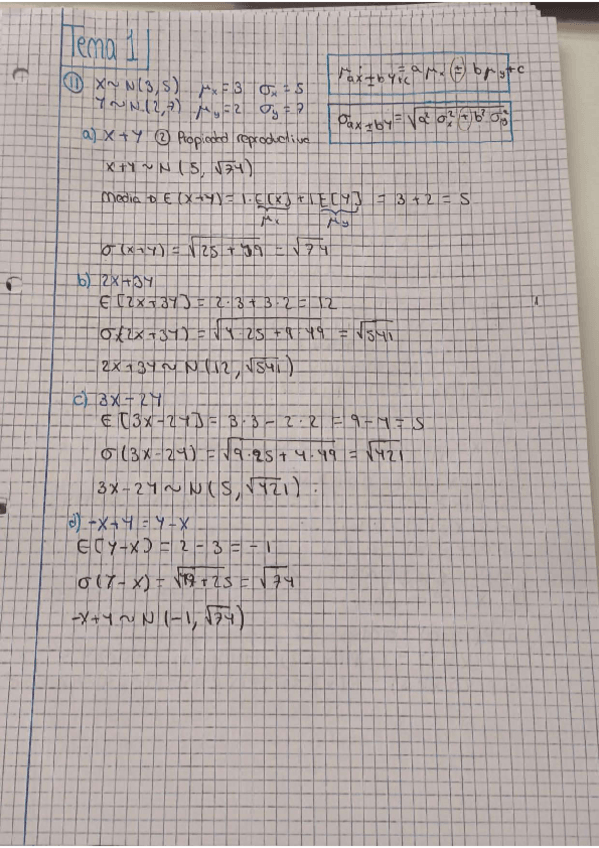 Tema 1
μax±by+c = a μx (±) b μy + c
σax±by = √a² σx² (+) b² σy²
⑪ X ~ N(3,5) μx = 3 σx = 5
Y ~ N(2,7) μy = 2 σy = 7
a) X+Y ② Propiedad reproductiva
X+Y ~ N(5, √74)
Media → E(X+Y) = 1·E[X] + 1 E[Y] = 3+2 = 5
μx μy
σ(x+y) = √25 + 49 = √74
b) 2X+3Y
E[2X+3Y] = 2·3+3·2 = 12
σ(2X+3Y) = √4·25 + 9·49 = √541
2X+3Y ~ N(12, √541)
c) 3X-2Y
E[3X-2Y] = 3·3 - 2·2 = 9-4 = 5
σ(3X-2Y) = √9·25 + 4·49 = √421
3X-2Y ~ N(5, √421).
d) -X+Y = Y-X
E(Y-X) = 2-3 = -1
σ(Y-X) = √49+25 = √74
-X+Y ~ N(-1, √74)